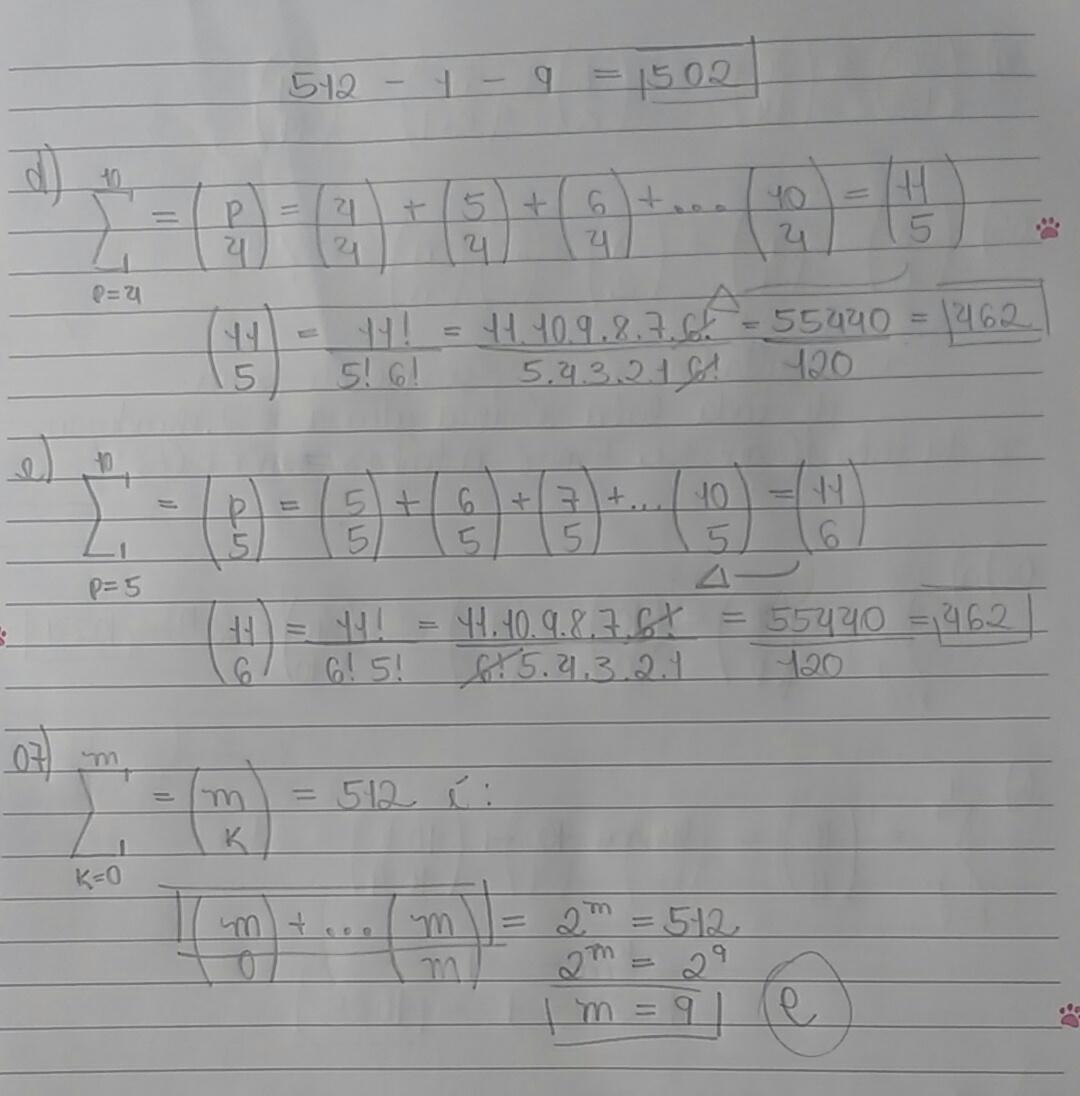 512 - 1 - 9 = 502
d) 10 ∑ p=4 = (p 4) = (4 4) + (5 4) + (6 4) + ... (10 4) = (11 5)
(11 5) = 11! / 5! 6! = 11.10.9.8.7.6! / 5.4.3.2.1 6! = 55440 / 120 = 462
e) 10 ∑ p=5 = (p 5) = (5 5) + (6 5) + (7 5) + ... (10 5) = (11 6)
(11 6) = 11! / 6! 5! = 11.10.9.8.7.6! / 6! 5.4.3.2.1 = 55440 / 120 = 462
07) m ∑ K=0 = (m K) = 512 é:
(m 0) + ... (m m) = 2^m = 512
2^m = 2^9
m = 9 e